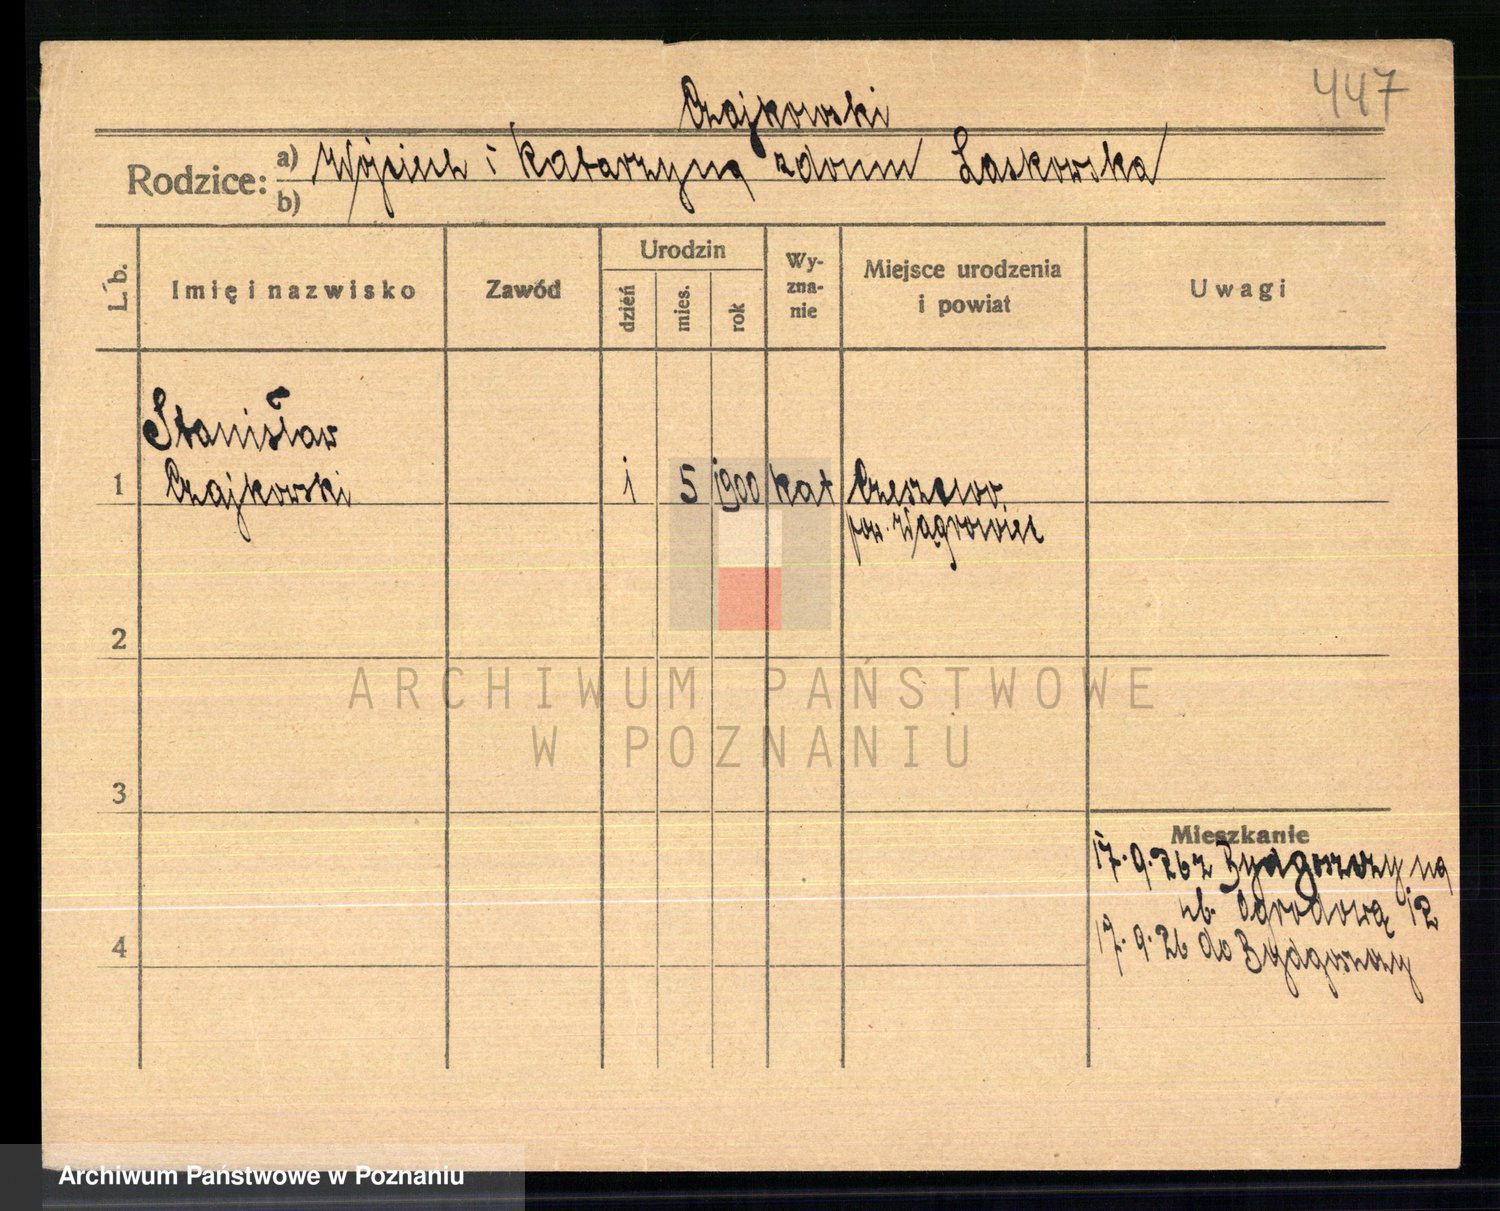 447
Czajkowski
Rodzice: a) Wojciech i Katarzyna zdomu Laskowska
b)
L. b.
Imię i nazwisko
Zawód
Urodzin
dzień
mies.
rok
Wy-
zna-
nie
Miejsce urodzenia
i powiat
Uwagi
Stanisław
1 Czajkowski 1 5 1900 kat Czeszewo
pow. Wągrowiec
2
ARCHIWUM PAŃSTWOWE
W POZNANIU
3
Mieszkanie
17.9.26 z Bydgoszczy na
ul. Ogrodową 12
4
17.9.26 do Bydgoszczy
Archiwum Państwowe w Poznaniu